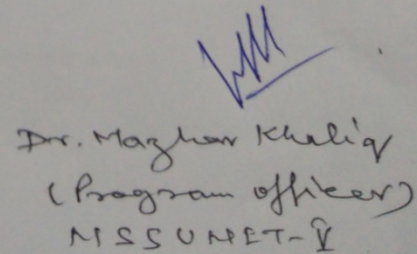 Dr. Mazhar Khaliq
(Program officer)
NSSUNIT-V